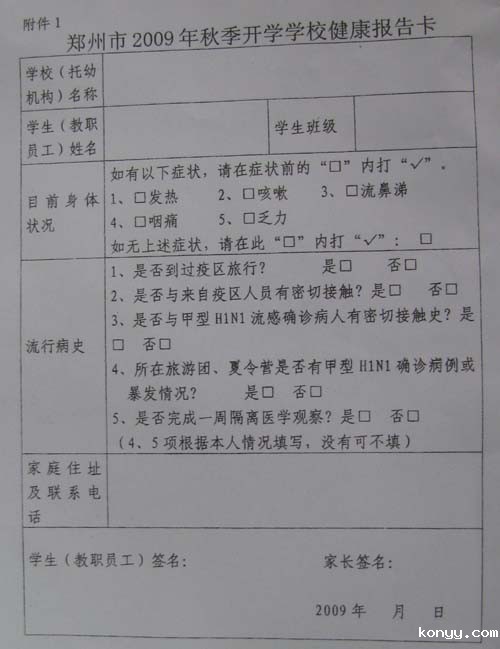 附件 1
郑州市 2009 年秋季开学学校健康报告卡
学校（托幼
机构）名称
学生（教职
员工）姓名
学生班级
目前身体
状况
如有以下症状，请在症状前的“□”内打“✓”。
1、□发热 2、□咳嗽 3、□流鼻涕
4、□咽痛 5、□乏力
如无上述症状，请在此“□”内打“✓”： □
流行病史
1、是否到过疫区旅行？ 是□ 否□
2、是否与来自疫区人员有密切接触？是□ 否□
3、是否与甲型 H1N1 流感确诊病人有密切接触史？是
□ 否□
4、所在旅游团、夏令营是否有甲型 H1N1 确诊病例或
暴发情况？ 是□ 否□
5、是否完成一周隔离医学观察？是□ 否□
（4、5 项根据本人情况填写，没有可不填）
家庭住址
及联系电
话
学生（教职员工）签名： 家长签名：
2009 年 月 日
konyy.com